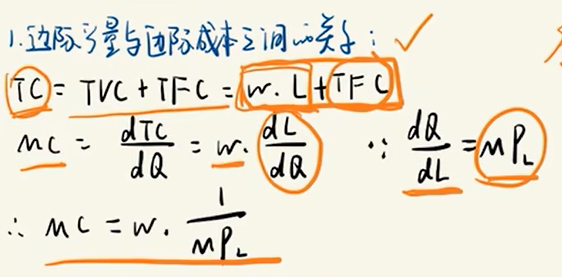 1.边际产量与边际成本之间的关系：
TC = TVC + TFC = w. L + TFC
MC = dTC/dQ = w. dL/dQ ∵ dQ/dL = MP_L
∴ MC = w. 1/MP_L